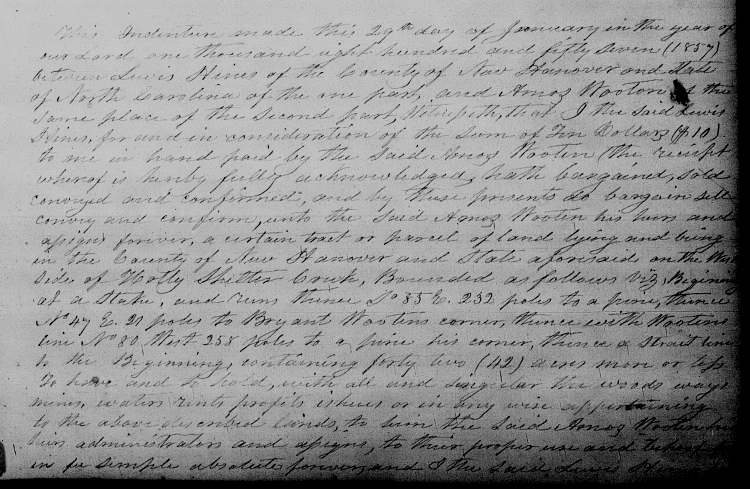 This Indenture made this 29th day of January in the year of
our Lord one thousand eight hundred and fifty seven (1857)
between Lewis Hines of the County of New Hanover and State
of North Carolina of the one part, and Amos Wooten of the
Same place of the Second part, Witnesseth, that I the said Lewis
Hines, for and in consideration of the Sum of Ten Dollars ($10)
to me in hand paid by the Said Amos Wooten (the receipt
whereof is hereby fully acknowledged, hath bargained, sold
conveyed and confirmed, and by these presents do bargain sell
convey and confirm, unto the Said Amos Wooten his heirs and
assigns forever, a certain tract or parcel of land lying and being
in the County of New Hanover and State aforesaid on the West
side of Holly Shelter Creek, Bounded as follows Viz, Begining
at a Stake, and runs thence So 85 E. 232 poles to a pine, thence
No 47 E. 21 poles to Bryant Wootens corner, thence with Wootens
line No 80 West 258 poles to a pine his corner, thence a Strait line
to the Beginning, containing forty two (42) acres more or less
To have and to hold, with all and singular the woods ways
mines, waters rents profits issues or in any wise appertaining
to the above described lands, to him the said Amos Wooten his
heirs administrators and assigns, to their proper use and behoof
in fee simple absolute forever, and I the said Lewis